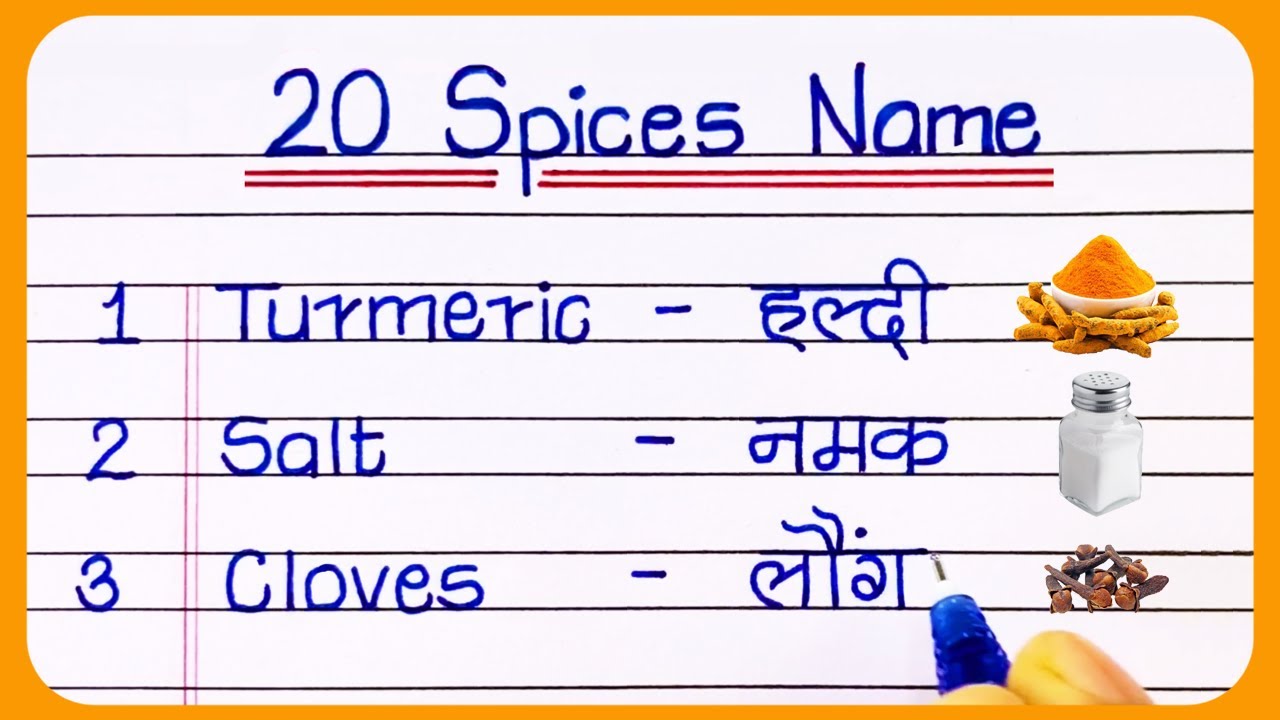 20 Spices Name
1 Turmeric - हल्दी
2 Salt - नमक
3 Cloves - लौंग